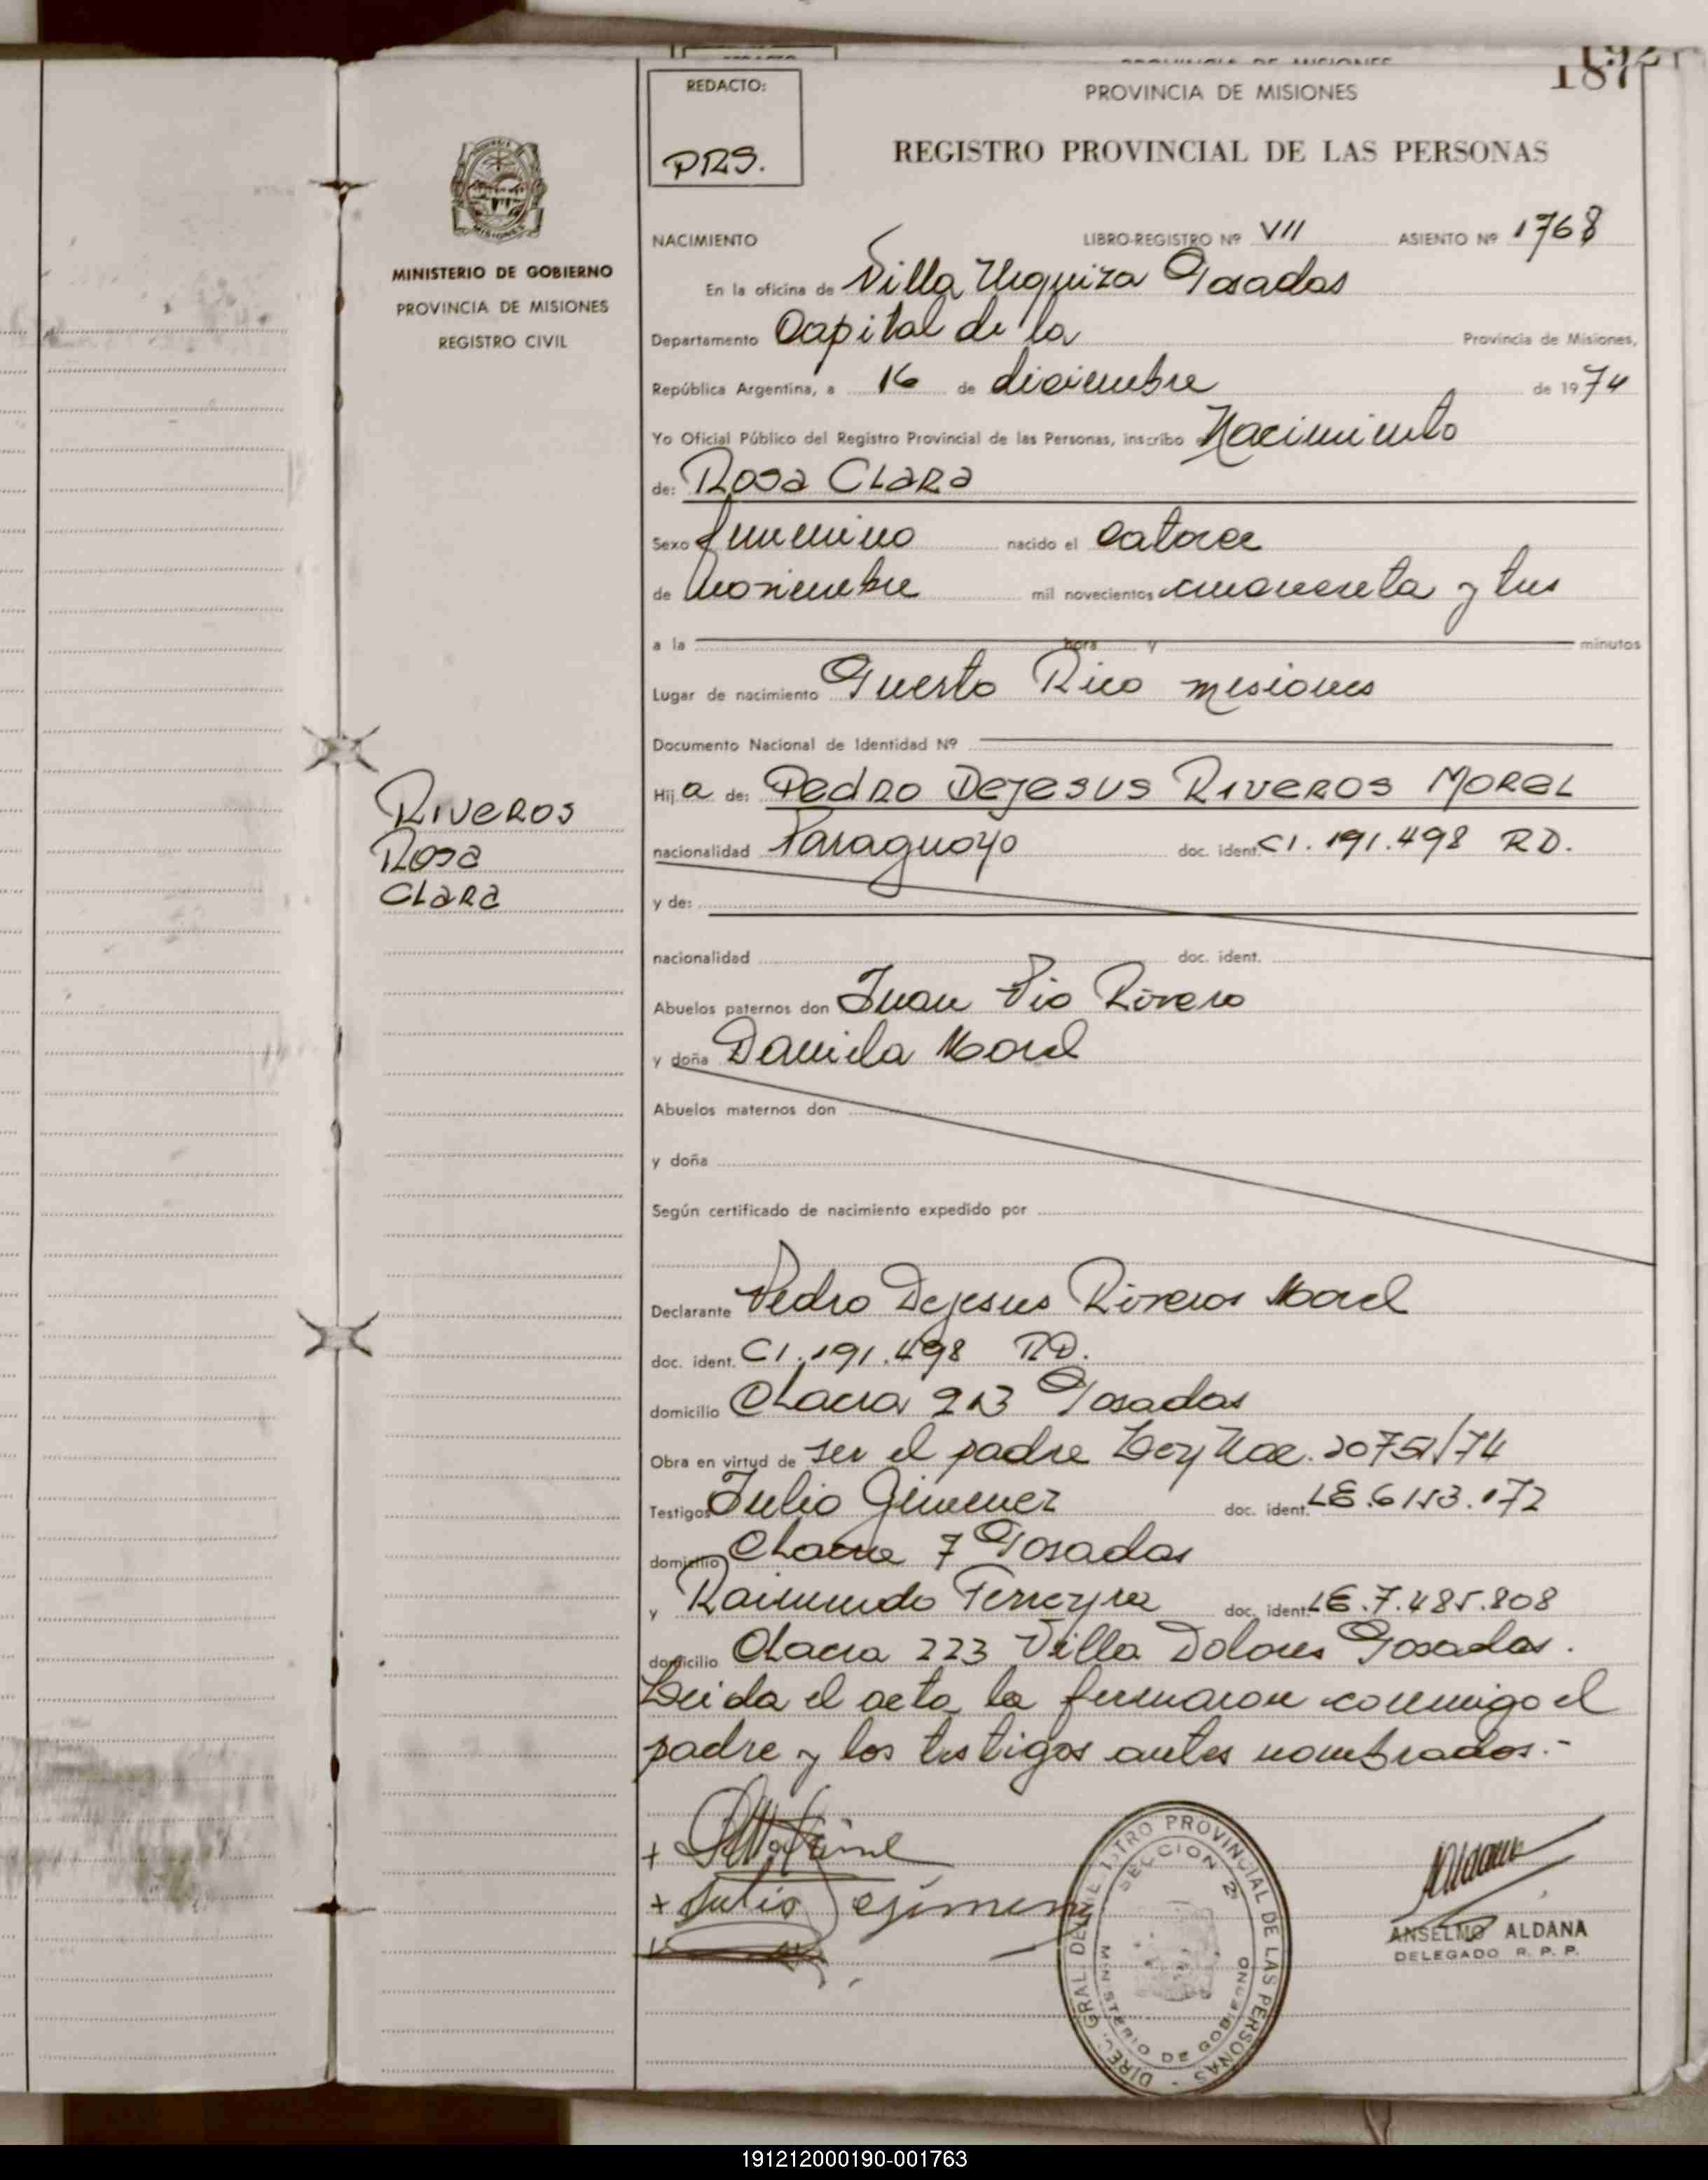 192
187
REDACTO:
PRS.
PROVINCIA DE MISIONES
REGISTRO PROVINCIAL DE LAS PERSONAS
MINISTERIO DE GOBIERNO
PROVINCIA DE MISIONES
REGISTRO CIVIL
NACIMIENTO LIBRO-REGISTRO Nº VII ASIENTO Nº 1768
En la oficina de Villa Urquiza Posadas
Departamento Capital de la Provincia de Misiones,
República Argentina, a 16 de diciembre de 1974
Yo Oficial Público del Registro Provincial de las Personas, inscribo el Nacimiento
de: Rosa Clara
Sexo femenino nacido el catorce
de noviembre mil novecientos cincuenta y tres
a la hora y minutos
Lugar de nacimiento Puerto Rico misiones
Documento Nacional de Identidad Nº
Hija de: Pedro Dejesus Riveros Morel
nacionalidad Paraguayo doc. ident. CI. 191.498 RD.
y de:
nacionalidad doc. ident.
Abuelos paternos don Juan Pio Rivero
y doña Daniela Morel
Abuelos maternos don
y doña
Según certificado de nacimiento expedido por
Declarante Pedro Dejesus Riveros Morel
doc. ident. CI. 191.498 RD.
domicilio Chacra 213 Posadas
Obra en virtud de ser el padre Ley Nac. 20751/74
Testigos Julio Gimenez doc. ident. LE.6153.172
domicilio Chacra 7 Posadas
y Raimundo Ferreyra doc. ident. LE.7.485.808
domicilio Chacra 223 Villa Dolores Posadas.
Leida el acta la firmaron conmigo el
padre y los testigos antes nombrados.-
RIVEROS
Rosa
CLARA
+
+ Julio Jimenez
ANSELMO ALDANA
DELEGADO R. P. P.
DIREC. GRAL. DEL REGISTRO PROVINCIAL DE LAS PERSONAS -
SECCION 2ª
MINISTERIO DE GOBIERNO
191212000190-001763